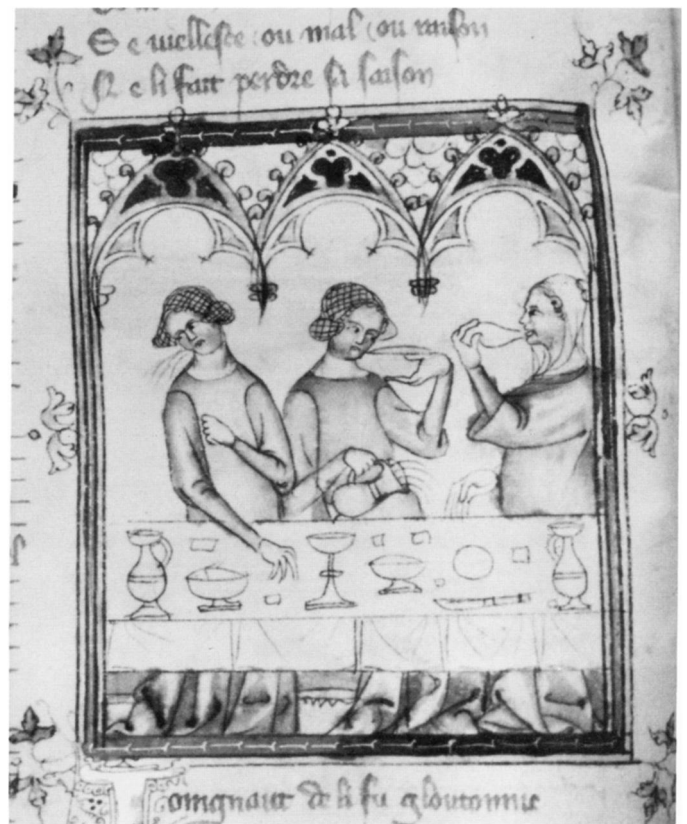 Se viellesce ou mal ou raison
Ne li fait perdre sa saison
oingnant de li fu gloutonnie